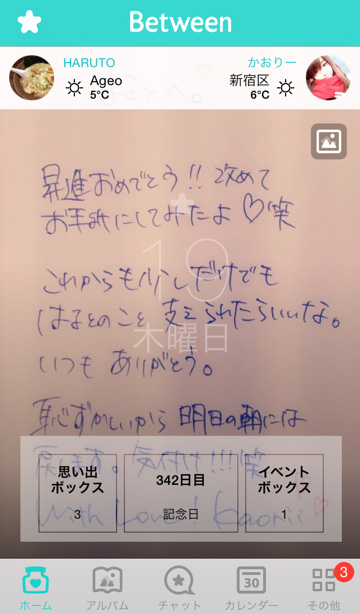 Between
HARUTO
Ageo
5°C
かおりー
新宿区
6°C
とへ。
昇進おめでとう!! 改めて
お手紙にしてみたよ♡笑
19
木曜日
これからも少しだけでも
はるとのこと 支えられたらいいな。
いつも ありがとう。
恥ずかしいから 明日の朝には
戻します。気付け!!! 笑
With Love! Kaomi
思い出
ボックス
3
342日目
記念日
イベント
ボックス
1
ホーム
アルバム
チャット
30
カレンダー
3
その他